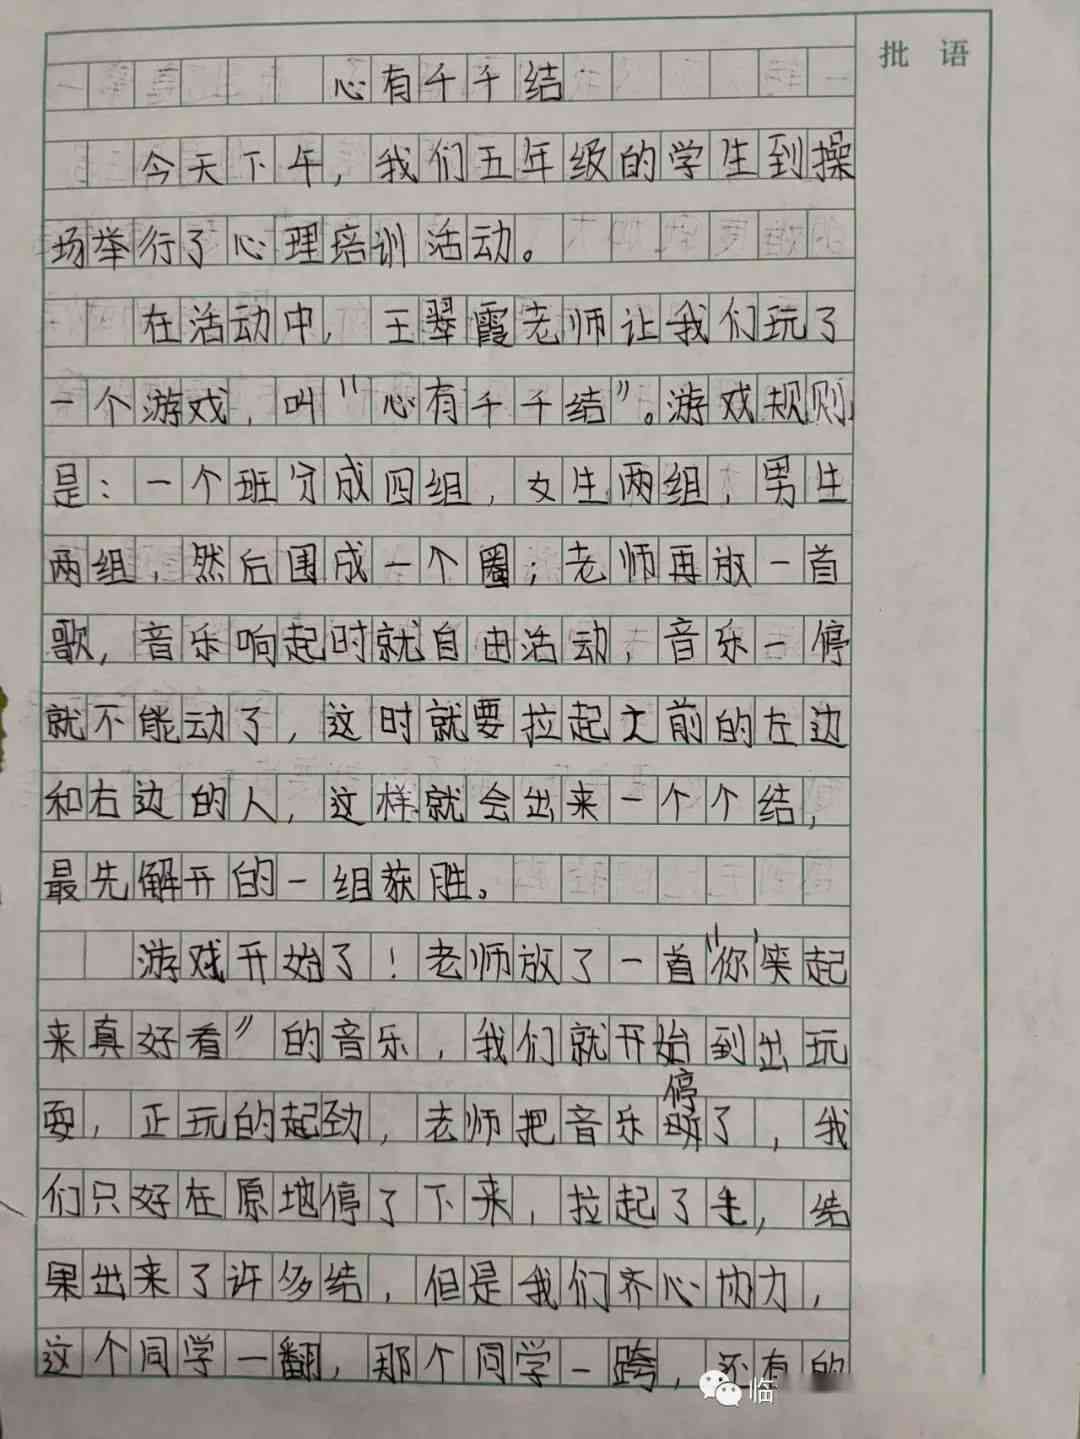 批 语
心有千千结
今天下午，我们五年级的学生到操
场举行了心理培训活动。
在活动中，王翠霞老师让我们玩了
一个游戏，叫“心有千千结”。游戏规则
是：一个班分成四组，女生两组，男生
两组，然后围成一个圈；老师再放一首
歌，音乐响起时就自由活动，音乐一停
就不能动了，这时就要拉起之前的左边
和右边的人，这样就会出来一个个结，
最先解开的一组获胜。
游戏开始了！老师放了一首“你笑起
来真好看”的音乐，我们就开始到出玩
耍，正玩的起劲，老师把音乐停了，我
们只好在原地停了下来，拉起了手，结
果出来了许多结，但是我们齐心协力，
这个同学一翻，那个同学一跨，还有的
临